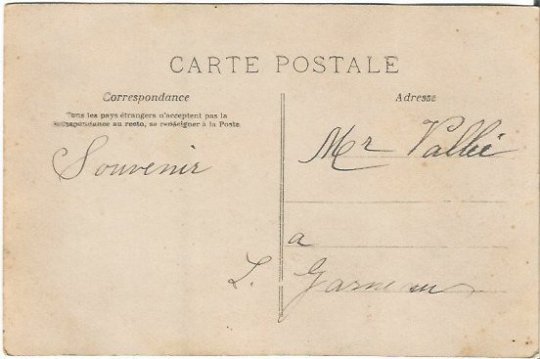 CARTE POSTALE
Correspondance
Tous les pays étrangers n'acceptent pas la
correspondance au recto, se renseigner à la Poste
Souvenir
L.
Adresse
Mr Vallée
a